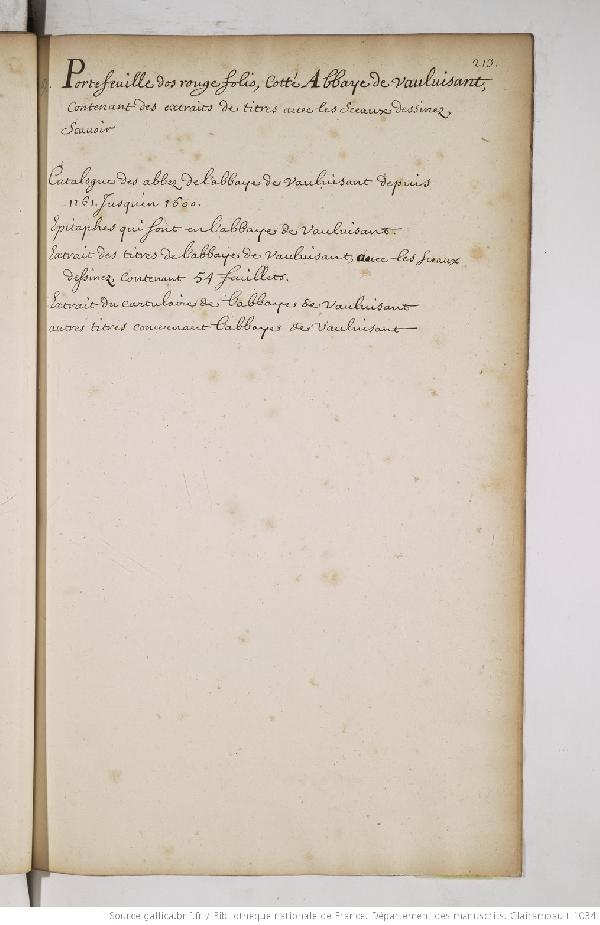 213.
Portefeuille dos rouge folio, Cotté Abbaye de Vauluisant,
Contenant des extraits de titres avec les sceaux dessinez,
Scavoir
Catalogue des abbez de l'abbaye de Vauluisant depuis
1161. Jusqu'en 1600.
Epitaphes qui sont en l'abbaye de Vauluisant.
Extrait des titres de l'abbaye de Vauluisant avec les sceaux
dessinez, Contenant 54 feuillets.
Extrait du cartulaire de l'abbaye de Vauluisant
autres titres concernant l'abbaye de Vauluisant
Source gallica.bnf.fr / Bibliothèque nationale de France. Département des manuscrits. Clairambault 1034